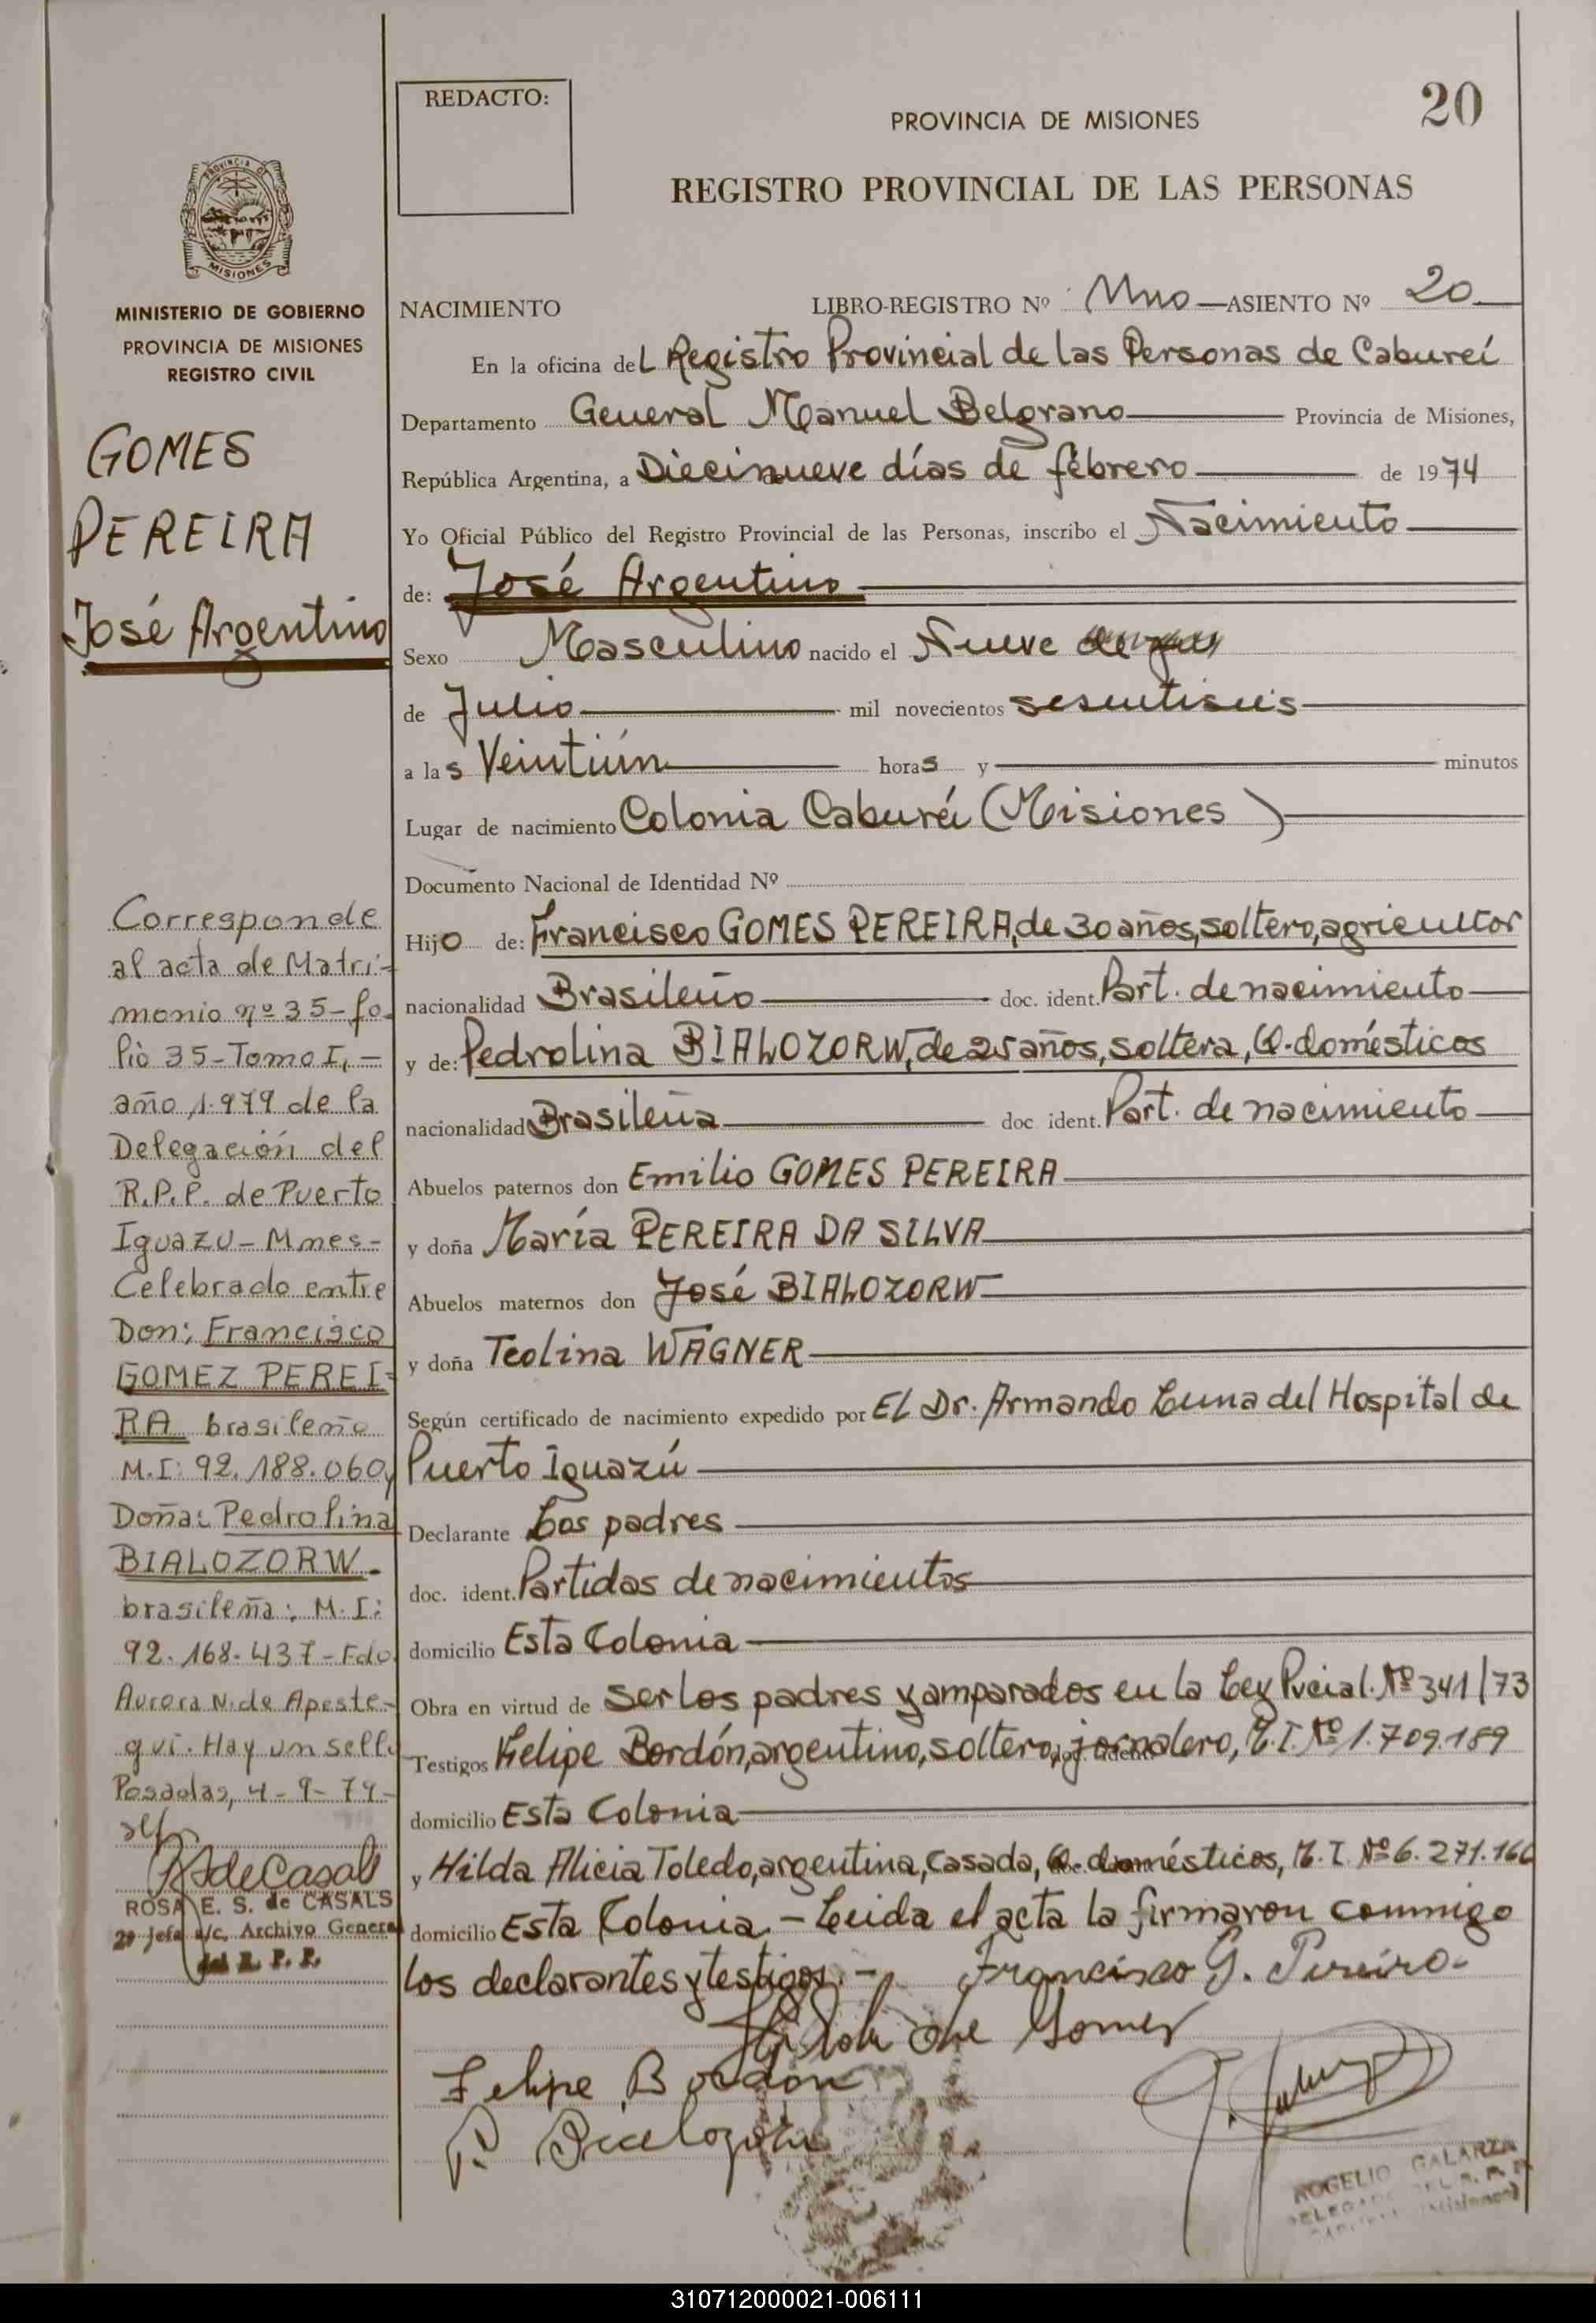 REDACTO:
PROVINCIA DE MISIONES
20
REGISTRO PROVINCIAL DE LAS PERSONAS
PROVINCIA DE
MISIONES
MINISTERIO DE GOBIERNO
PROVINCIA DE MISIONES
REGISTRO CIVIL
GOMES
PEREIRA
José Argentino
NACIMIENTO LIBRO-REGISTRO Nº Uno ASIENTO Nº 20
En la oficina del Registro Provincial de las Personas de Cabureí
Departamento General Manuel Belgrano Provincia de Misiones,
República Argentina, a Diecinueve días de febrero de 1974
Yo Oficial Público del Registro Provincial de las Personas, inscribo el Nacimiento
de: José Argentino
Sexo Masculino nacido el Nueve
de Julio mil novecientos sesentiseis
a las Veintiún horas y minutos
Lugar de nacimiento Colonia Cabureí (Misiones)
Documento Nacional de Identidad Nº
Hijo de: Francisco GOMES PEREIRA, de 30 años, soltero, agricultor
nacionalidad Brasileño doc. ident. Part. de nacimiento
y de: Pedrolina BIALOZORW, de 25 años, soltera, Q. domésticos
nacionalidad Brasileña doc. ident. Part. de nacimiento
Abuelos paternos don Emilio GOMES PEREIRA
y doña María PEREIRA DA SILVA
Abuelos maternos don José BIALOZORW
y doña Teolina WAGNER
Según certificado de nacimiento expedido por El Dr. Armando Luna del Hospital de
Puerto Iguazú
Declarante Los padres
doc. ident. Partidas de nacimientos
domicilio Esta Colonia
Obra en virtud de ser los padres y amparados en la Ley Pvcial. Nº 341/73
Testigos Felipe Bordón, argentino, soltero, jornalero, M.I. Nº 1.709.189
domicilio Esta Colonia
y Hilda Alicia Toledo, argentina, casada, Q. domésticos, M.I. Nº 6.271.166
domicilio Esta Colonia.- Leida el acta la firmaron conmigo
los declarantes y testigos.-
Francisco G. Pereira
Hilda de Gomes
Felipe Bordón
P.
ROGELIO GALARZA
Corresponde
al acta de Matri-
monio nº 35-fo-
lio 35-Tomo I,-
año 1.979 de la
Delegación del
R.P.P. de Puerto
Iguazu-Mnes-
Celebrado entre
Don: Francisco
GOMEZ PEREI-
RA brasileño
M.I: 92.188.060 y
Doña: Pedrolina
BIALOZORW-
brasileña: M.I:
92.168.437-Fdo.
Aurora N. de Apeste-
gui. Hay un sello
Posadas, 4-9-79-
RSdeCasals
ROSA E. S. de CASALS
2º Jefe a/c. Archivo General
del R. P. P.
310712000021-006111